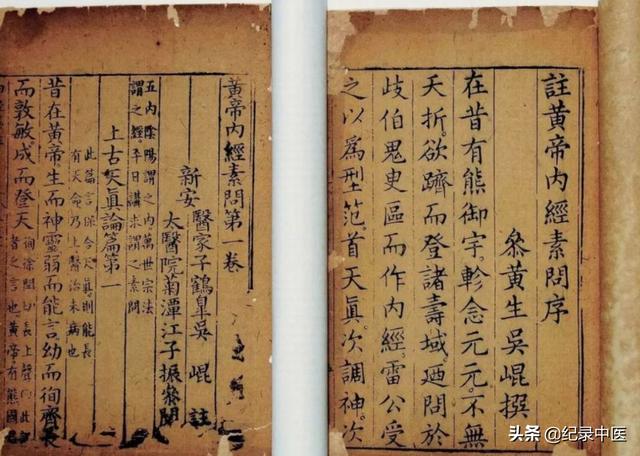 註黃帝內經素問序
叅黃生吳崐撰
在昔有熊御宇軫念元元不無
夭折欲躋而登諸壽域廼問於
歧伯鬼臾區而作內經雷公受
之以為型范首天真次調神次
黃帝內經素問第一卷
新安
醫家子鶴皐吳 崐 註
太醫院菊潭江子振叅閱
五內陰陽謂之內萬世宗法
謂之經平日講求謂之素問
上古天真論篇第一
此篇言保合天真則能長
有天命乃上醫治未病也
昔在黃帝生而神靈弱而能言幼而徇齊長
而敦敏成而登天
頭条 @纪录中医